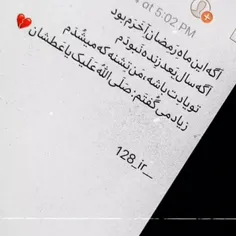 at 5:02 PM
اگه این ماه رمضان آخرم بود
اگه سال بعد زنده نبودم
تو یادت باشه، من تشنه که میشدم
زیاد می گفتم: صَلَی اللهُ عَلَیک یا عَطشان
128_ir__